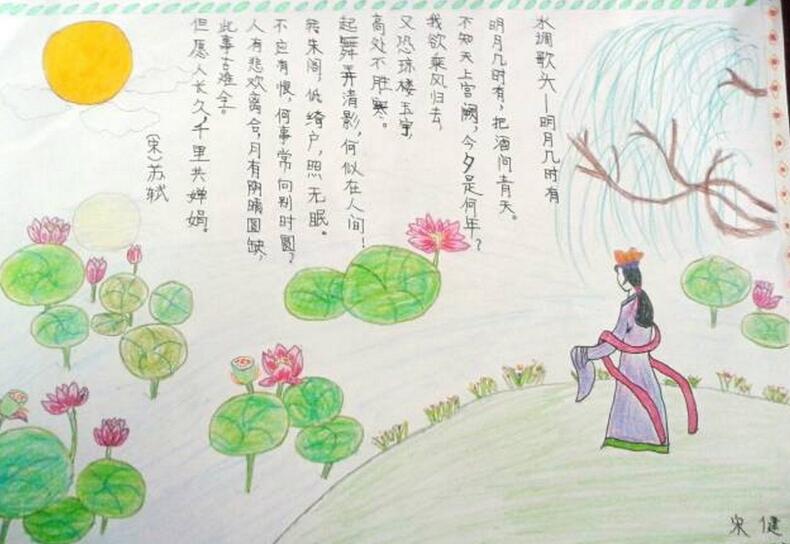 水调歌头—明月几时有
明月几时有,把酒问青天。
不知天上宫阙,今夕是何年?
我欲乘风归去,
又恐琼楼玉宇,
高处不胜寒。
起舞弄清影,何似在人间!
转朱阁,低绮户,照无眠。
不应有恨,何事常向别时圆?
人有悲欢离合,月有阴晴圆缺,
此事古难全。
但愿人长久,千里共婵娟。
(宋)苏轼
宋健